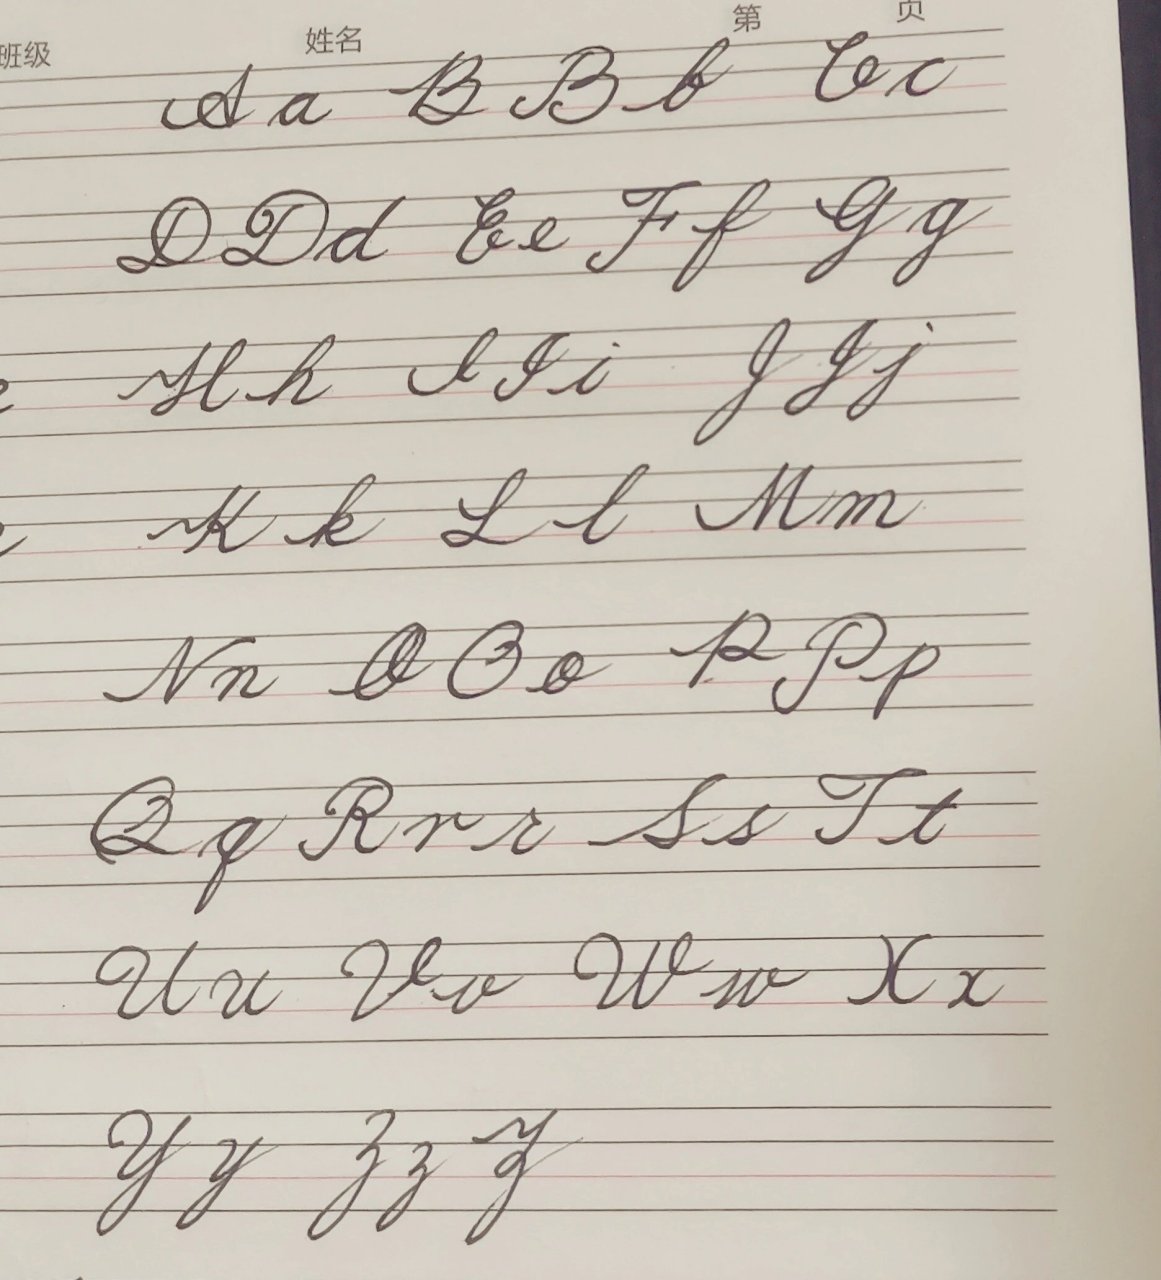 班级 姓名 第 页
A a B B b C c
D D d E e F f G g
H h I I i J J j
K k L l M m
N n O O o P P p
Q q R r r S s T t
U u V v W w X x
Y y Z z Z